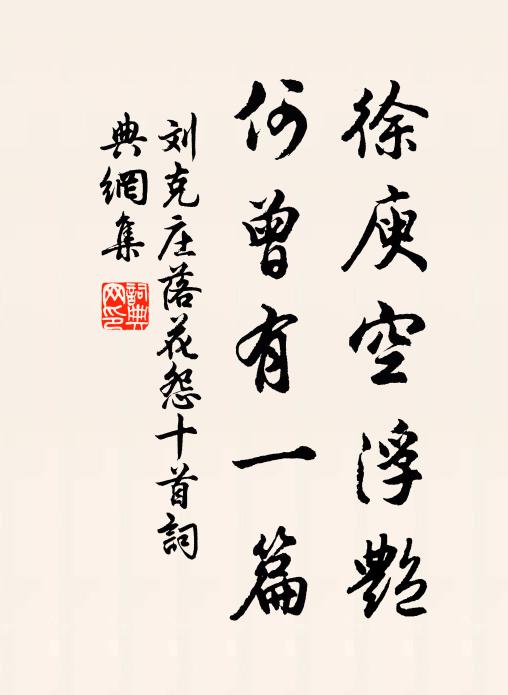 徐庾空浮艷
何曾有一篇
刘克庄落花怨十首詞
典網集
詞典网印